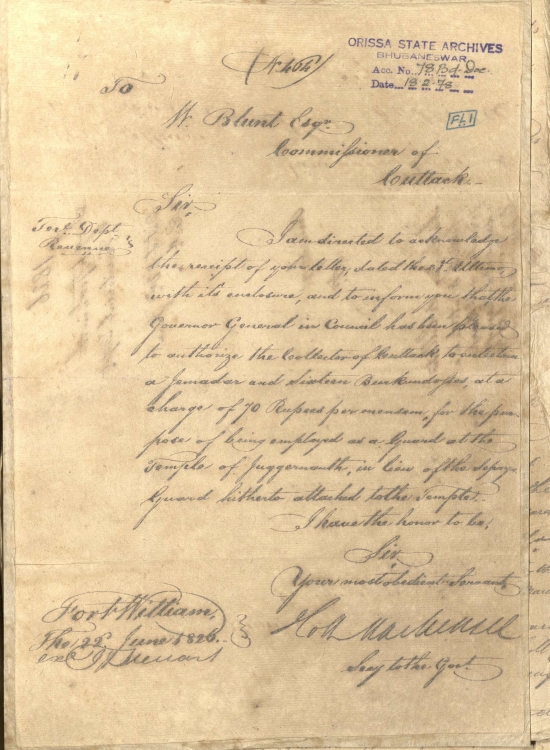 ORISSA STATE ARCHIVES
BHUBANESWAR
Acc. No. 78 Bd. Doc.
Date 18.2.78
No. 464
F41
To
W. Blunt Esqr.
Commissioner of
Cuttack.
Sir,
Terl. Dept.
Revenue
I am directed to acknowledge
the receipt of your letter, dated the Ultimo,
with its enclosure, and to inform you that the
Governor General in Council has been pleased
to authorize the Collector of Cuttack to entertain
a Jemadar and Sixteen Burkundosses, at a
charge of 70 Rupees per mensem for the pur-
pose of being employed as a Guard at the
Temple of Juggernauth, in lieu of the Sepoy
Guard hitherto attached to the Temple.
I have the honor to be,
Sir,
Your most obedient Servant
Secy to the Govt.
Fort William,
The 22d June 1826.